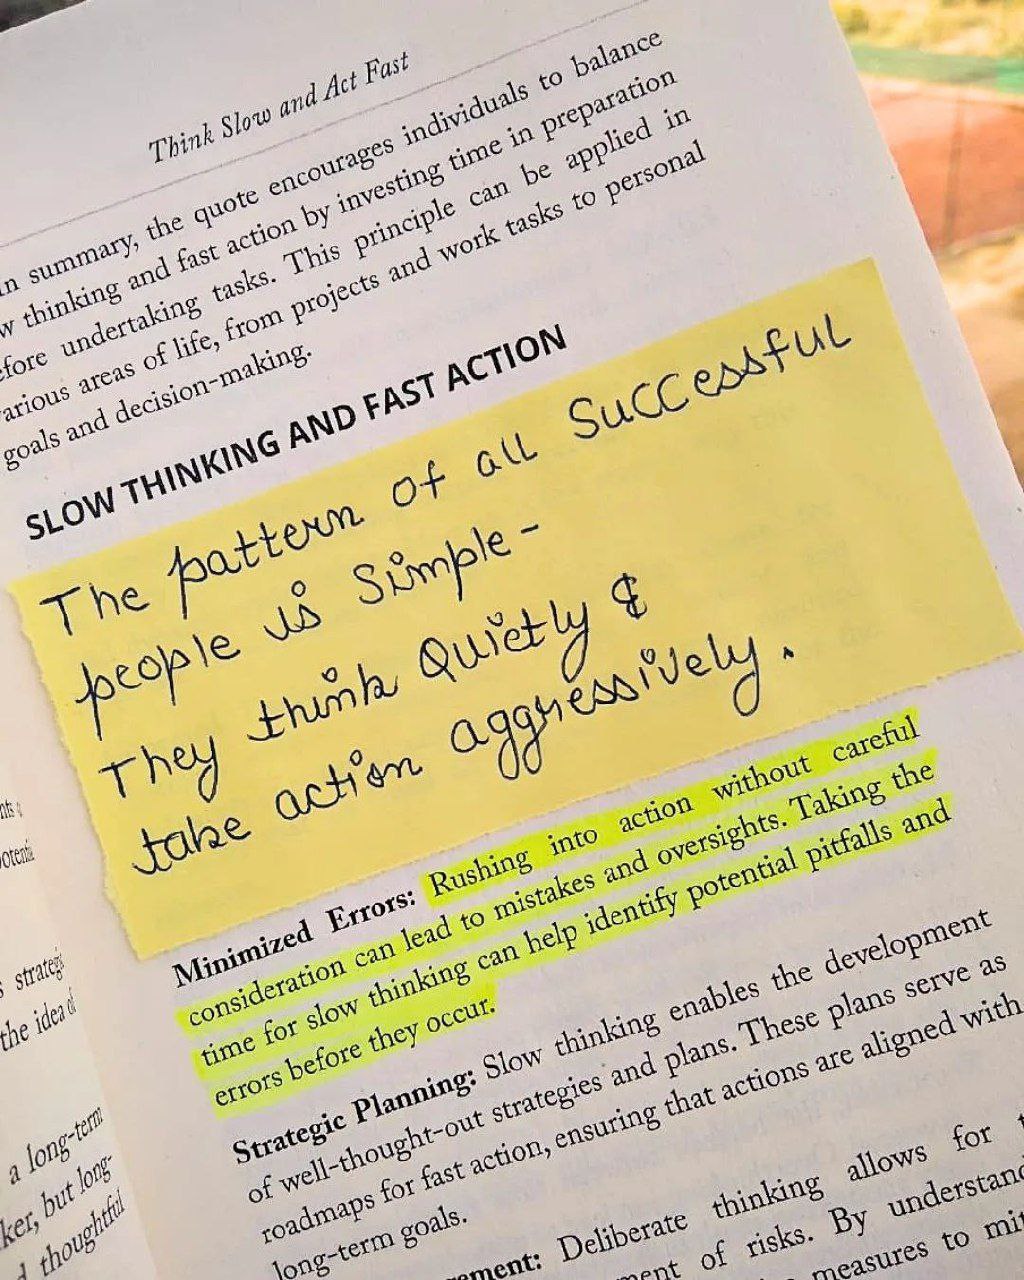 Think Slow and Act Fast
summary, the quote encourages individuals to balance
thinking and fast action by investing time in preparation
undertaking tasks. This principle can be applied in
areas of life, from projects and work tasks to personal
goals and decision-making.
SLOW THINKING AND FAST ACTION
The pattern of all Successful
people is Simple -
They think Quietly &
take action aggressively.
Minimized Errors: Rushing into action without careful
consideration can lead to mistakes and oversights. Taking the
time for slow thinking can help identify potential pitfalls and
errors before they occur.
Strategic Planning: Slow thinking enables the development
of well-thought-out strategies and plans. These plans serve as
roadmaps for fast action, ensuring that actions are aligned with
long-term goals.
Deliberate thinking allows for
of risks. By
measures to
the idea
a long-term
but long-
thoughtful